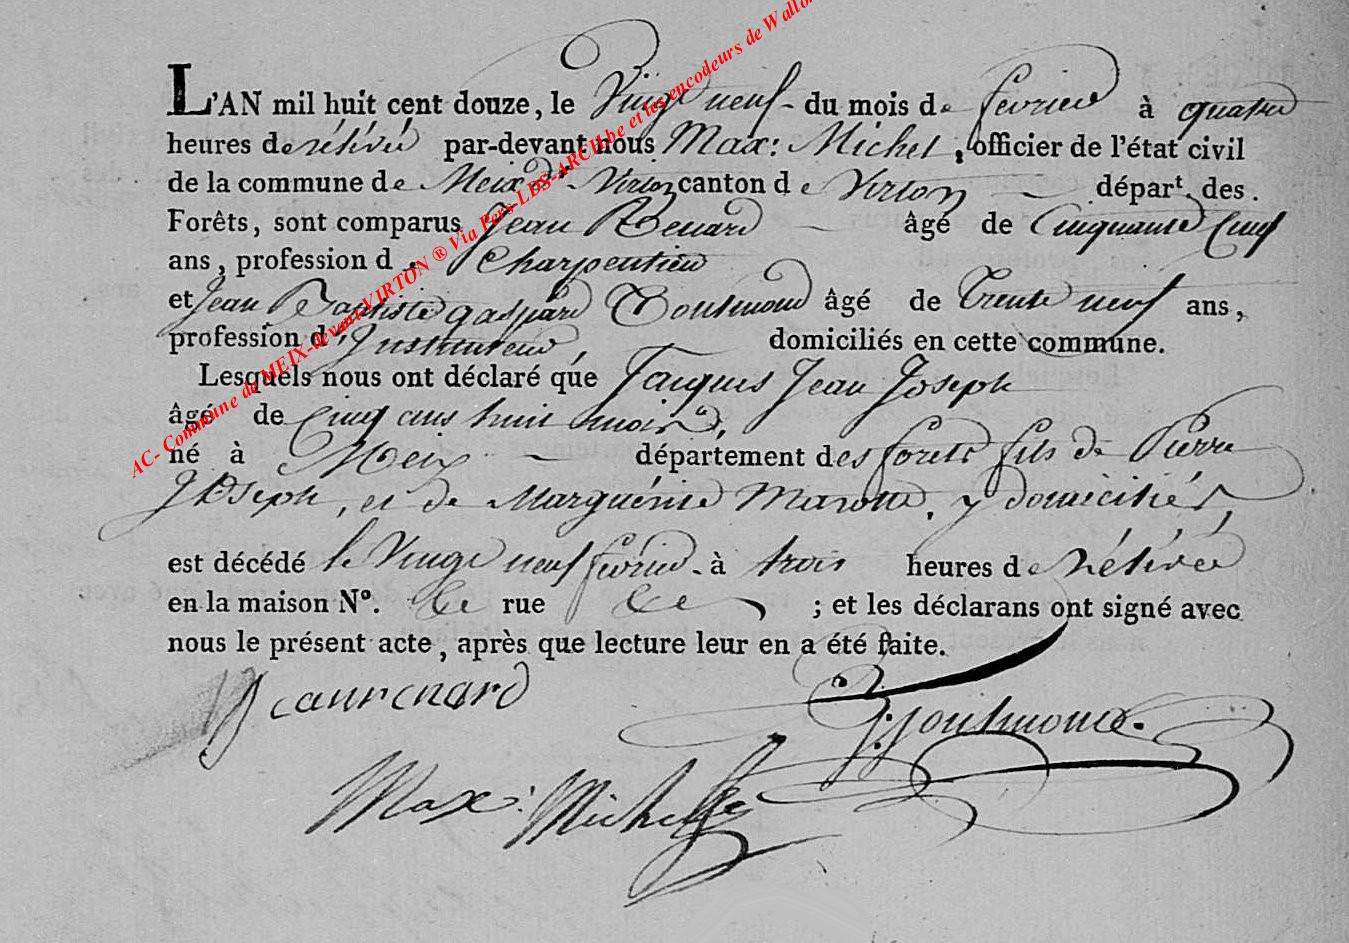 L'AN mil huit cent douze, le Vingt neuf du mois de fevrier à quatre
heures de rélévée par-devant nous Max: Michel, officier de l'état civil
de la commune de Meix dt Virton canton de Virton départ. des
Forêts, sont comparus Jean Renard âgé de Cinquante Cinq
ans, profession d. Charpentier
et Jean Baptiste gaspard Toussmond âgé de Trente neuf ans,
profession d'Instituteur, domiciliés en cette commune.
Lesquels nous ont déclaré que Jacques Jean Joseph
âgé de Cinq ans huit mois,
né à Meix département des forets fils de Pierre
Joseph, et de Marguérite Marotte, y domiciliés,
est décédé le Vingt neuf fevrier à trois heures de rélévée
en la maison N°. rue ; et les déclarans ont signé avec
nous le présent acte, après que lecture leur en a été faite.
Jean renard
Max: Michel
AC- Commune de MEIX-devant-VIRTON ® Via Pers-LES-ARCH.be et les encodeurs de Wallo